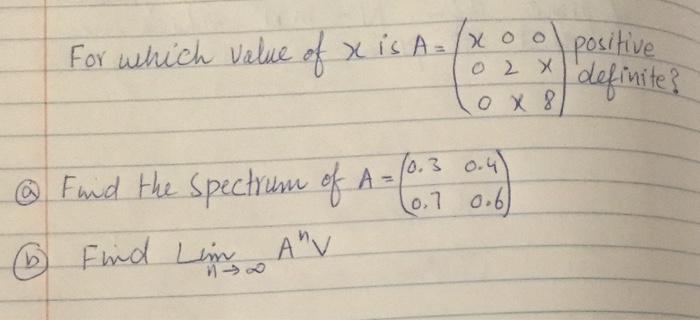 For which value of x is A = (x 0 0 positive
0 2 x definite?
0 x 8)
(a) Find the Spectrum of A = (0.3 0.4
0.7 0.6)
(b) Find Lim AⁿV
n→∞